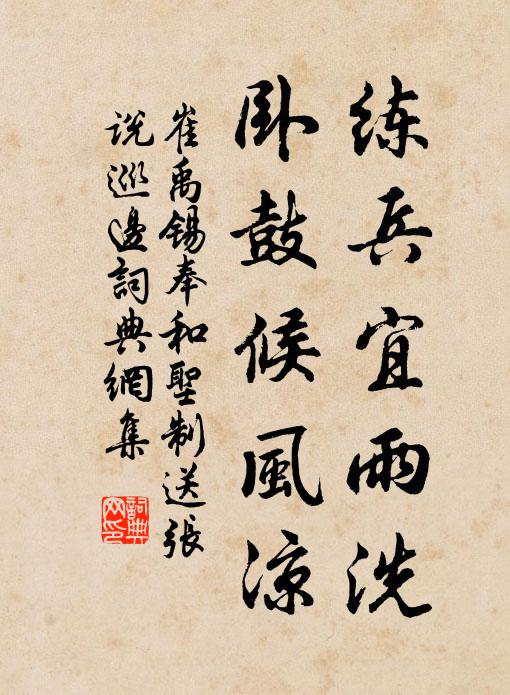 练兵宜雨洗
卧鼓候風凉
崔禹锡奉和聖制送張
説巡邊詞典網集
詞典
网印